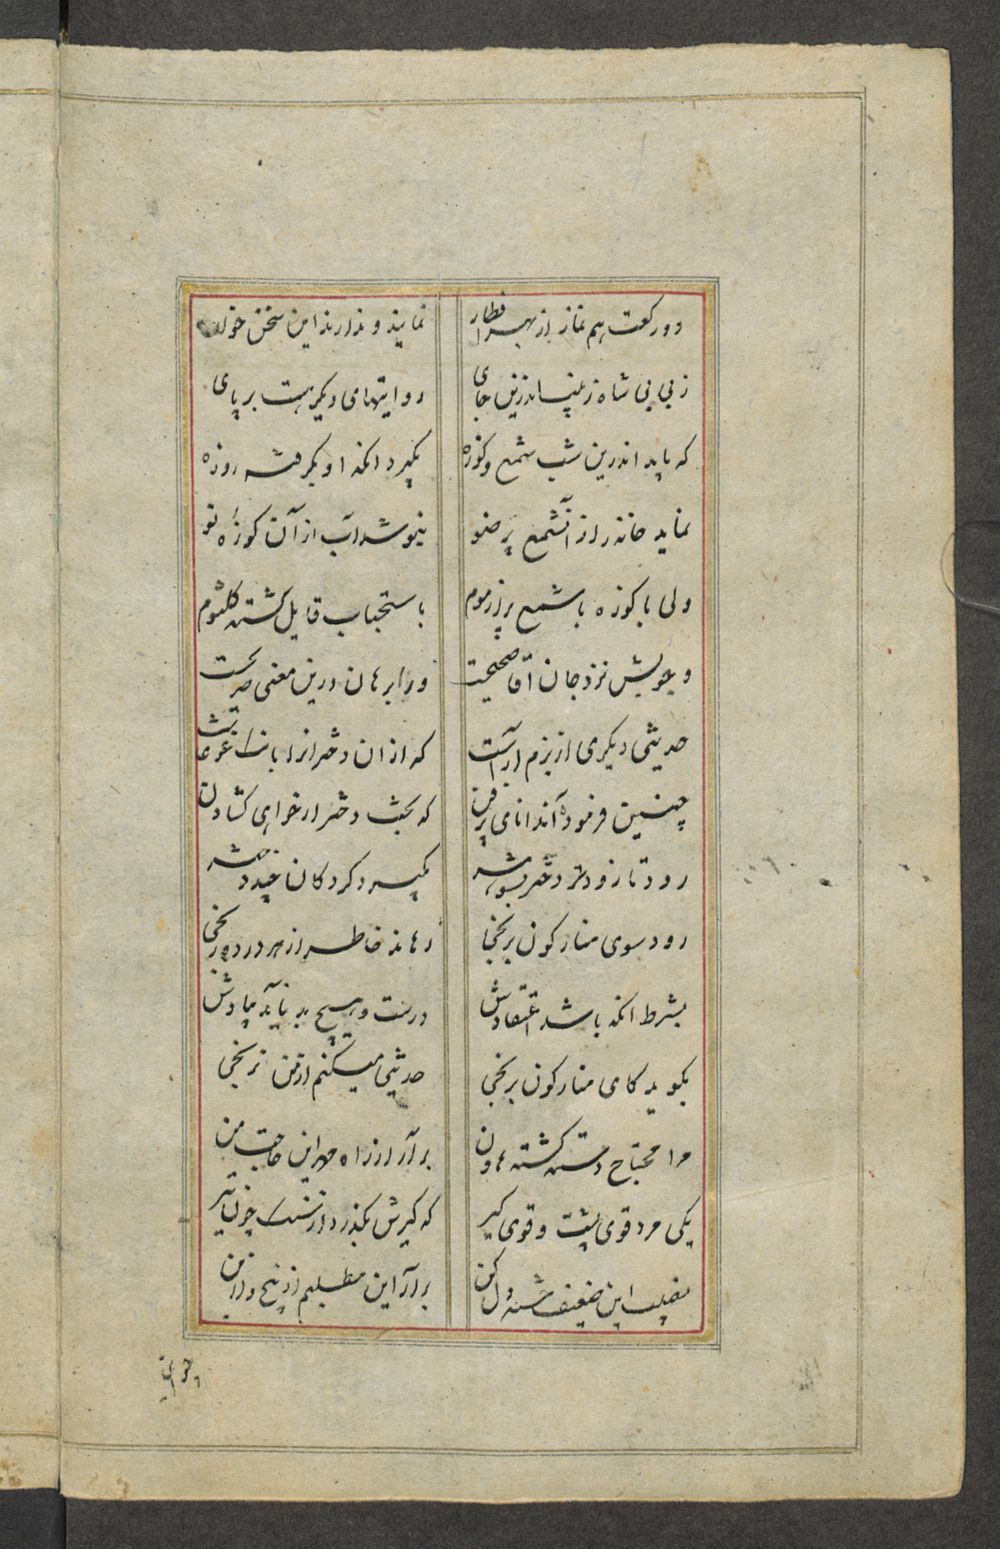 دو رکعت هم نماز از بهر افطار
نمایند و ندارند این سخن خوار
ز بی بی شاه زینب اندرین جای
روایتهای دیگر هست بر پای
که باید اندرین شب شمع و کوزه
بگیرد انکه او بگرفته روزه
نماید خانه را از آن شمع پر ضو
بنوشد آب از آن کوزهٔ نو
ولی با کوزه با شمع پر از موم
باستحباب قایل گشته کلثوم
وجوبش نزد جان آقا صحیحست
ورا برهان درین معنی صریحست
حدیثی دیگری از بزم آراست
که از ان دختران را بانک غوغاست
چنین فرموده آن دانای پر فن
که بخت دختر ار خواهی کشادن
رود تا زودتر دختر بشوهر
بگیرد کردکان
رود سوی منار کون برنجی
رهاند خاطر از هر درد و رنجی
بشرط انکه باشد اعتقادش
درست و هیچ بد ناید بیادش
بگوید کای منار کون برنجی
حدیثی میکنم از من نرنجی
مرا محتاج دسته گشته هاون
برآر از راه مهر این حاجت من
یکی مرد قوی پشت و قوی کیر
که کیرش بگذرد از سنگ چون تیر
نصیب این ضعیف خسته دل کن
برآر این مطلبم از بیخ و از بن